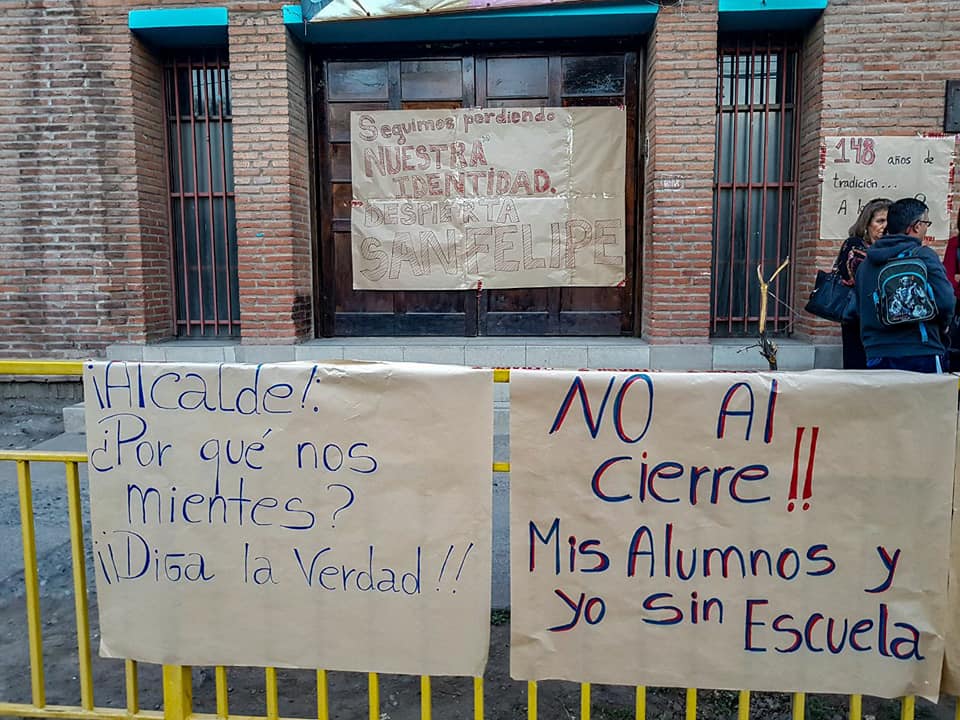 Seguimos perdiendo
NUESTRA
IDENTIDAD.
DESPIERTA
SAN FELIPE
148 años de
tradición...
A
¡Alcalde!:
¿Por qué nos
mientes?
¡¡Diga la Verdad!!
NO Al
cierre!!
Mis Alumnos y
yo sin Escuela